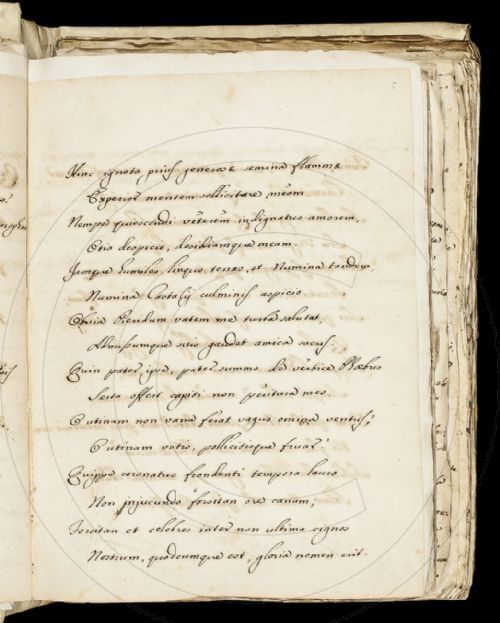 5
Hinc ignota prius generosæ semina flammæ
Experior mentem sollicitare meam
Nempe quiescendi veterem indignatus amorem,
Otia despicio, desidiamque meam.
Jamque humiles linquo terras, et Numina tandem,
Numina Castalij culminis aspicio
Obvia Pieridum vatem me turba salutat,
Admissumque suis gaudet amica sacris.
Quin pater ipse, pater summo de vertice Phœbus
Serta offert capiti non peritura meo.
O utinam non vana ferat vagus omina ventus;
O utinam votis, pollicitisque fruar!
Quippe coronatus frondenti tempora lauro
Non injucundo forsitan ore canam;
Forsitan et celebres inter non ultima cignos
Nostrum, quodcumque est, gloria nomen erit.